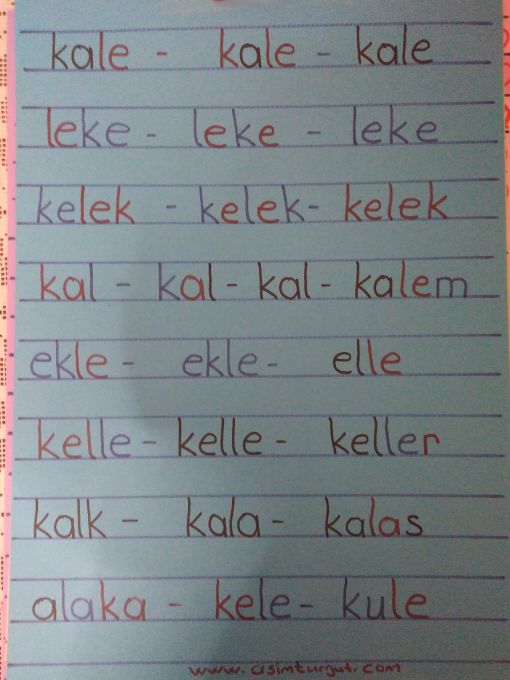 kale - kale - kale
leke - leke - leke
kelek - kelek - kelek
kal - kal - kal - kalem
ekle - ekle - elle
kelle - kelle - keller
kalk - kala - kalas
alaka - kele - kule
www.asimturgut.com